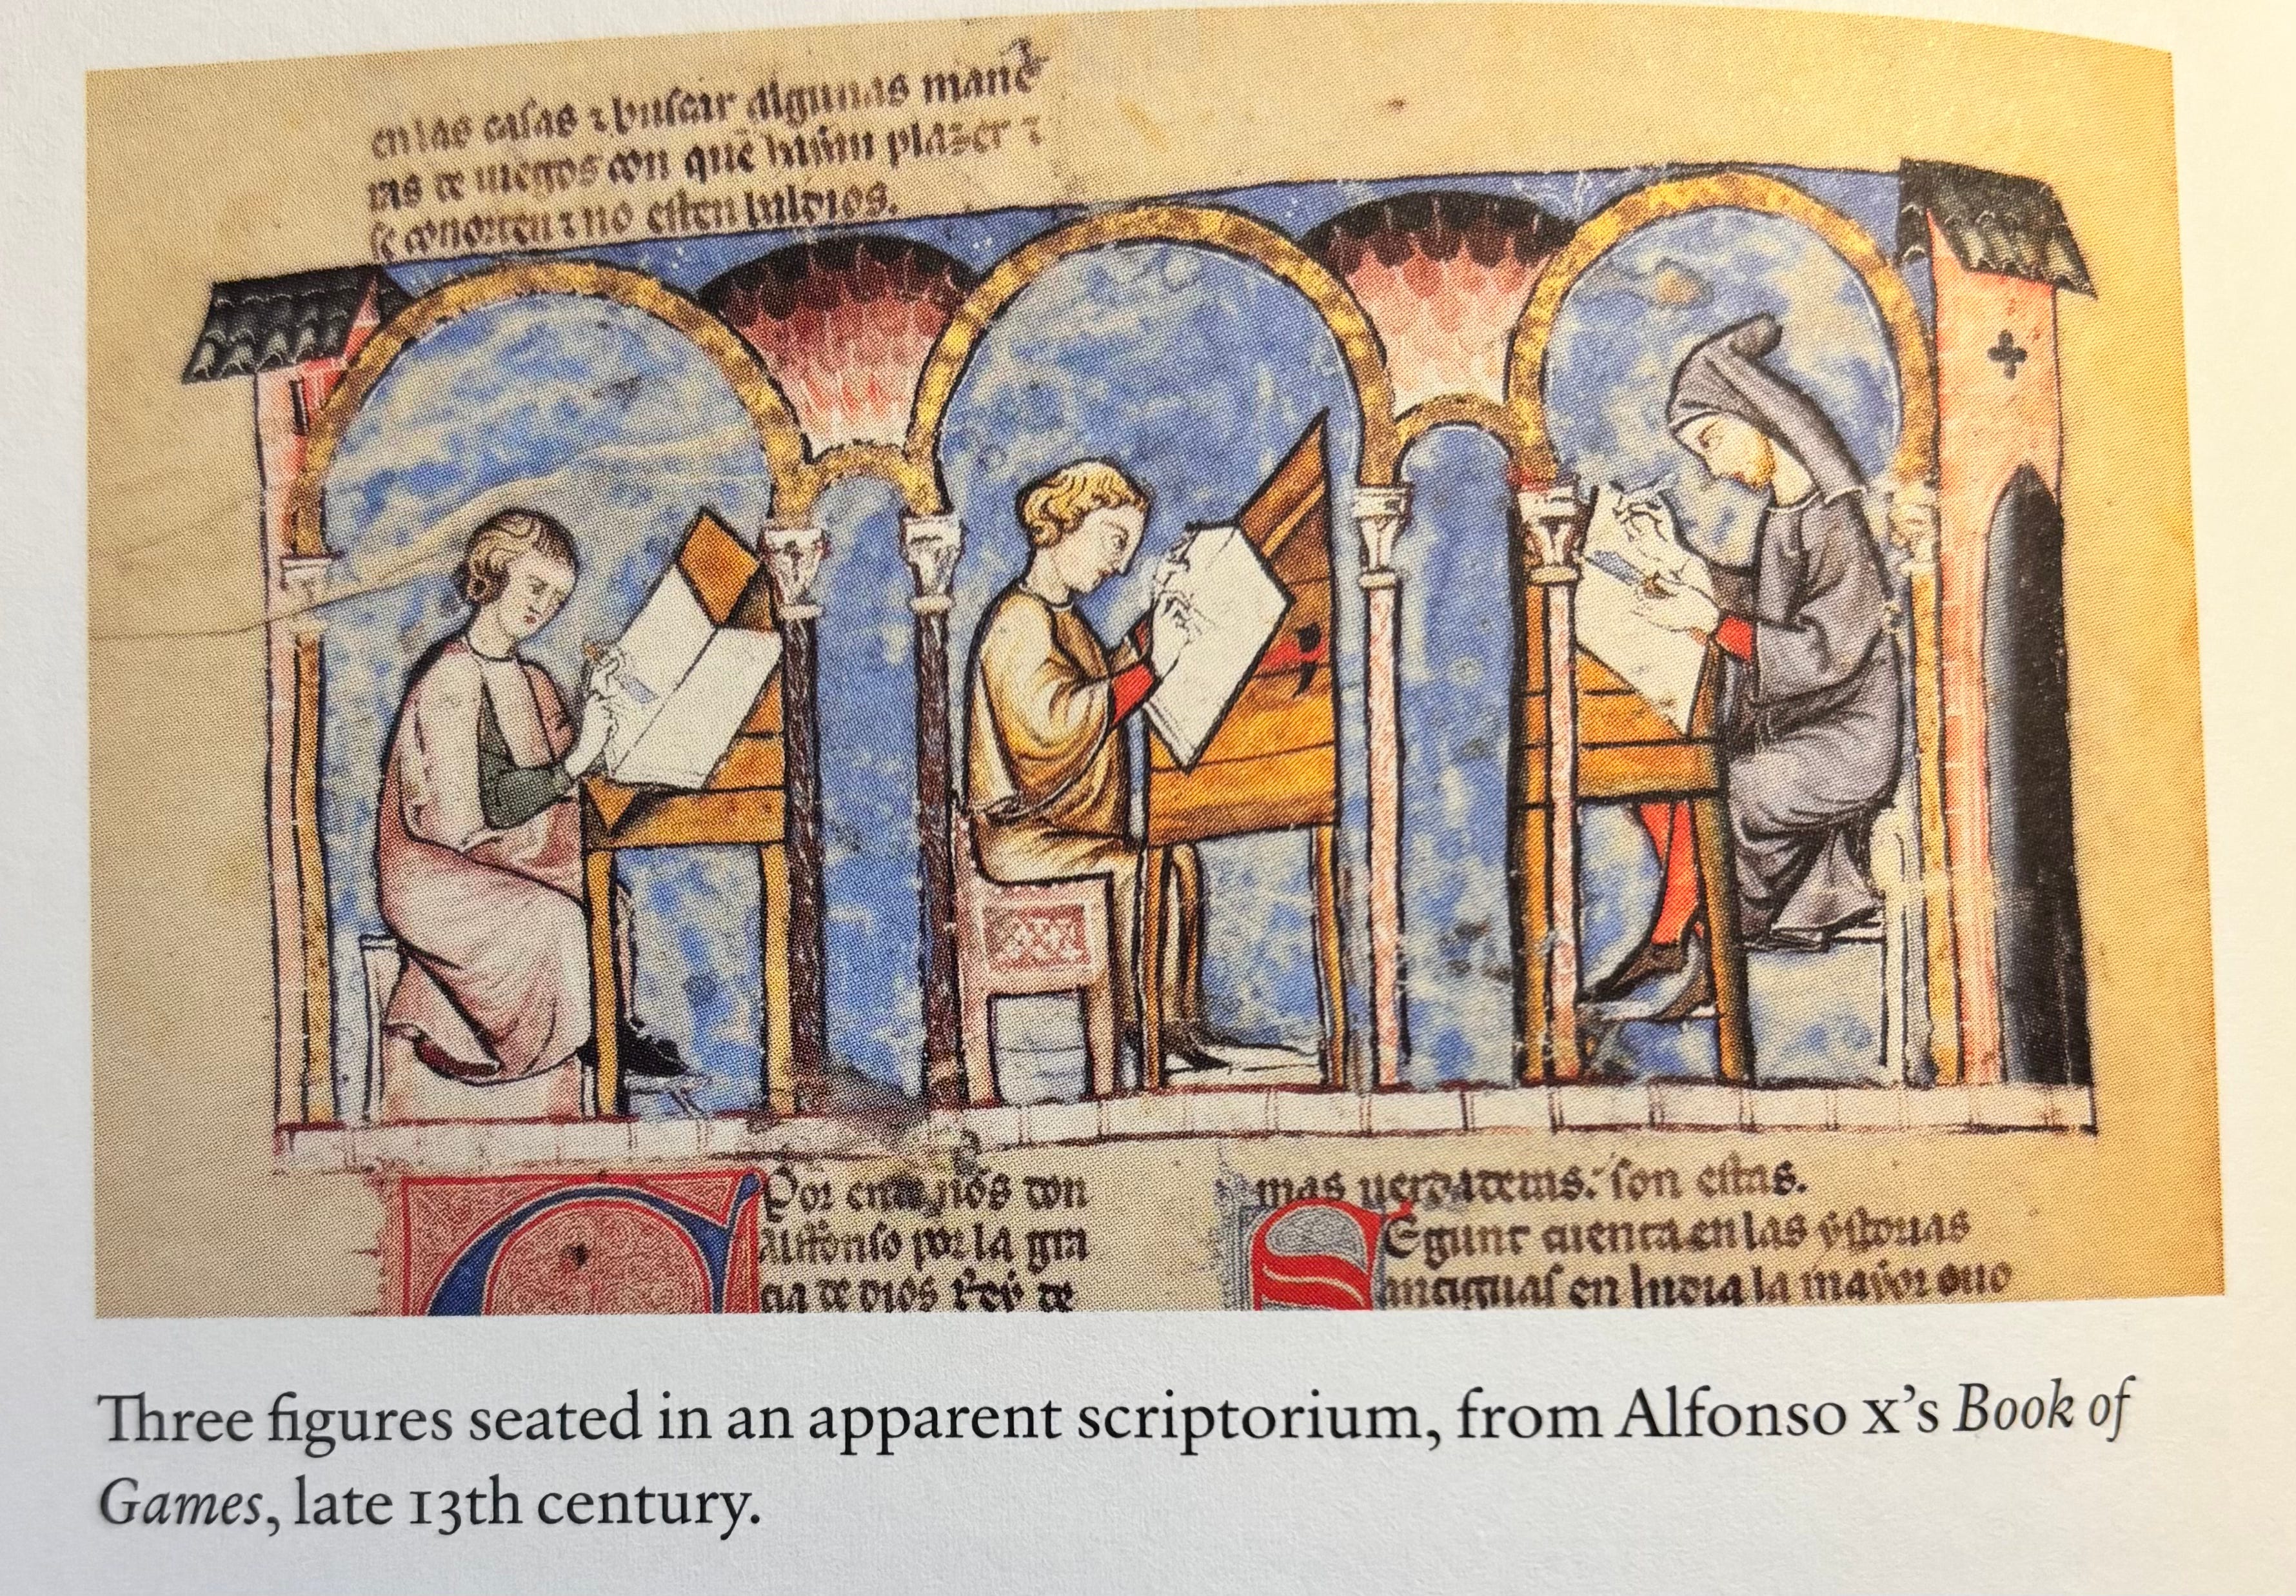 en las casas ⁊ buscar algunas mane
ras de iuegos con que
se conorten ⁊ no esten baldios.
Por ende nos don
alffonso por la gra
cia de dios Rey de
mas uerdaderas. son estas.
Segunt cuenta en las ystorias
antiguas en India la mayor ouo
Three figures seated in an apparent scriptorium, from Alfonso X’s Book of
Games, late 13th century.